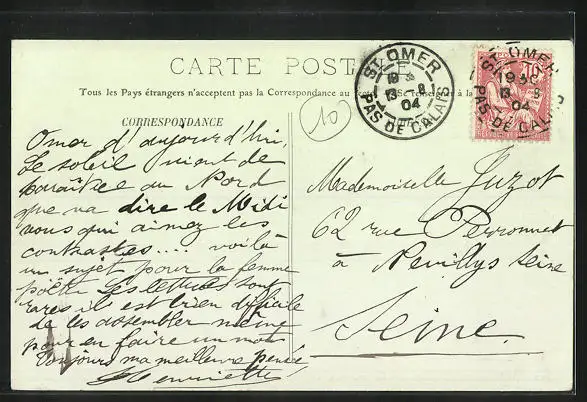 CARTE POSTALE
Tous les Pays étrangers n'acceptent pas la Correspondance au Se renseigner à la
CORRESPONDANCE
10
ST OMER
13 8
04
PAS DE CALAIS
ST OMER
1930
13 8
04
PAS DE CALAIS
10
Omer d'aujourd'hui,
Le soleil vient de
paraître au Nord
que va dire le Midi
vous qui aimez les
contrastes.... voilà
un sujet pour la femme
poète Les lettres sont
rares il est bien difficile
de les assembler même
pour en faire un mot
Toujours ma meilleure pensée
Henriette
Mademoiselle Juzot
62 rue Perronnet
à Neuillys Seine
Seine.